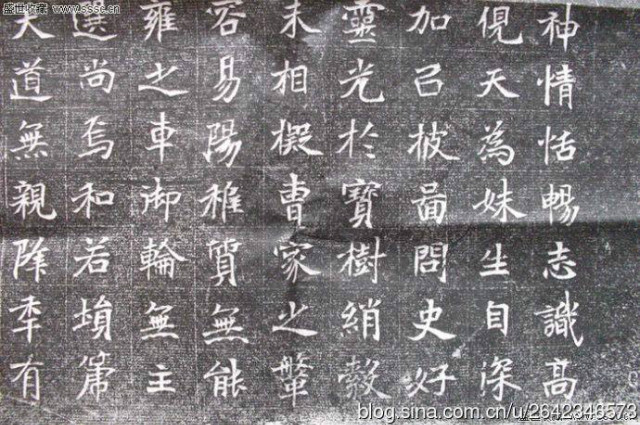 盛世收藏 www.sssc.cn
神情恬暢志識高
俔天為妹生自深
加㠯披啚問史好
靈光於寶樹綃縠
未相擬曹家之鞶
容易陽稚質無能
雍之車御輪無主
選尚焉和若塤箎
天道無親降年有
blog.sina.com.cn/u/2642346573